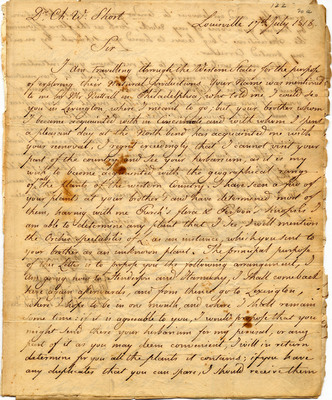 122
Dr Ch. W. Short
Louisville 17th July 1818.
Sir
I am travelling through the Western States for the purpose
of exploring their Natural productions. Your Name was mentioned
to me by Mr in Philadelphia, who told me I would see
you in Lexington where I meant to go, but your brother whom
I became acquainted with in Cincinnati and with whom I spent
a pleasant day at the North bend has acquainted me with
your removal. I regret exceedingly that I cannot visit your
part of the country and see your herbarium, as it is my
wish to become acquainted with the geographical range
of the plants of the western country. I have seen a few of
your plants at your brother's and have determined most of
them, having with me Pursh's flora & Persoon's Synopsis I
am able to determine any plant that I see. I will mention
the Orchis Spectabilis of as an instance, which you sent to
your brother as an unknown plant. The principal purpose
of this Letter is to propose you the following arrangement, I
am going now to Henderson and Harmony & I shall come back
here again afterwards, and from thence go to Lexington,
where I hope to be in one month, and where I shall remain
some time; if it is agreeable to you, I would propose that you
might send there your herbarium for my perusal, or any
part of it as you may deem convenient, I will in return
determine for you all the plants it contains; if you have
any duplicates that you can spare, I should receive them